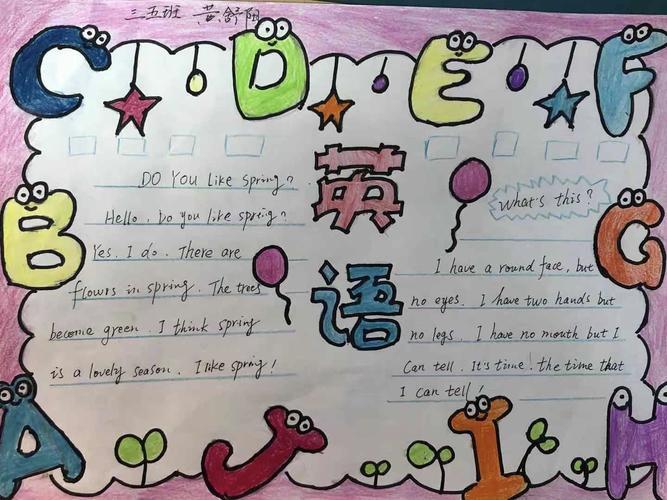 三五班 黄舒阳
C D E F
英语
DO YOU Like spring?
Hello. Do you like spreig?
Yes. I do. There are
flowrs in spring. The trees
become green. I think spring
is a lovely season. I like spring!
What's this?
I have a round face, but
no eyes. I have two hands but
no legs. I have no mouth but I
Can tell. It's time! the time that
I can tell!
B
G
A J I H